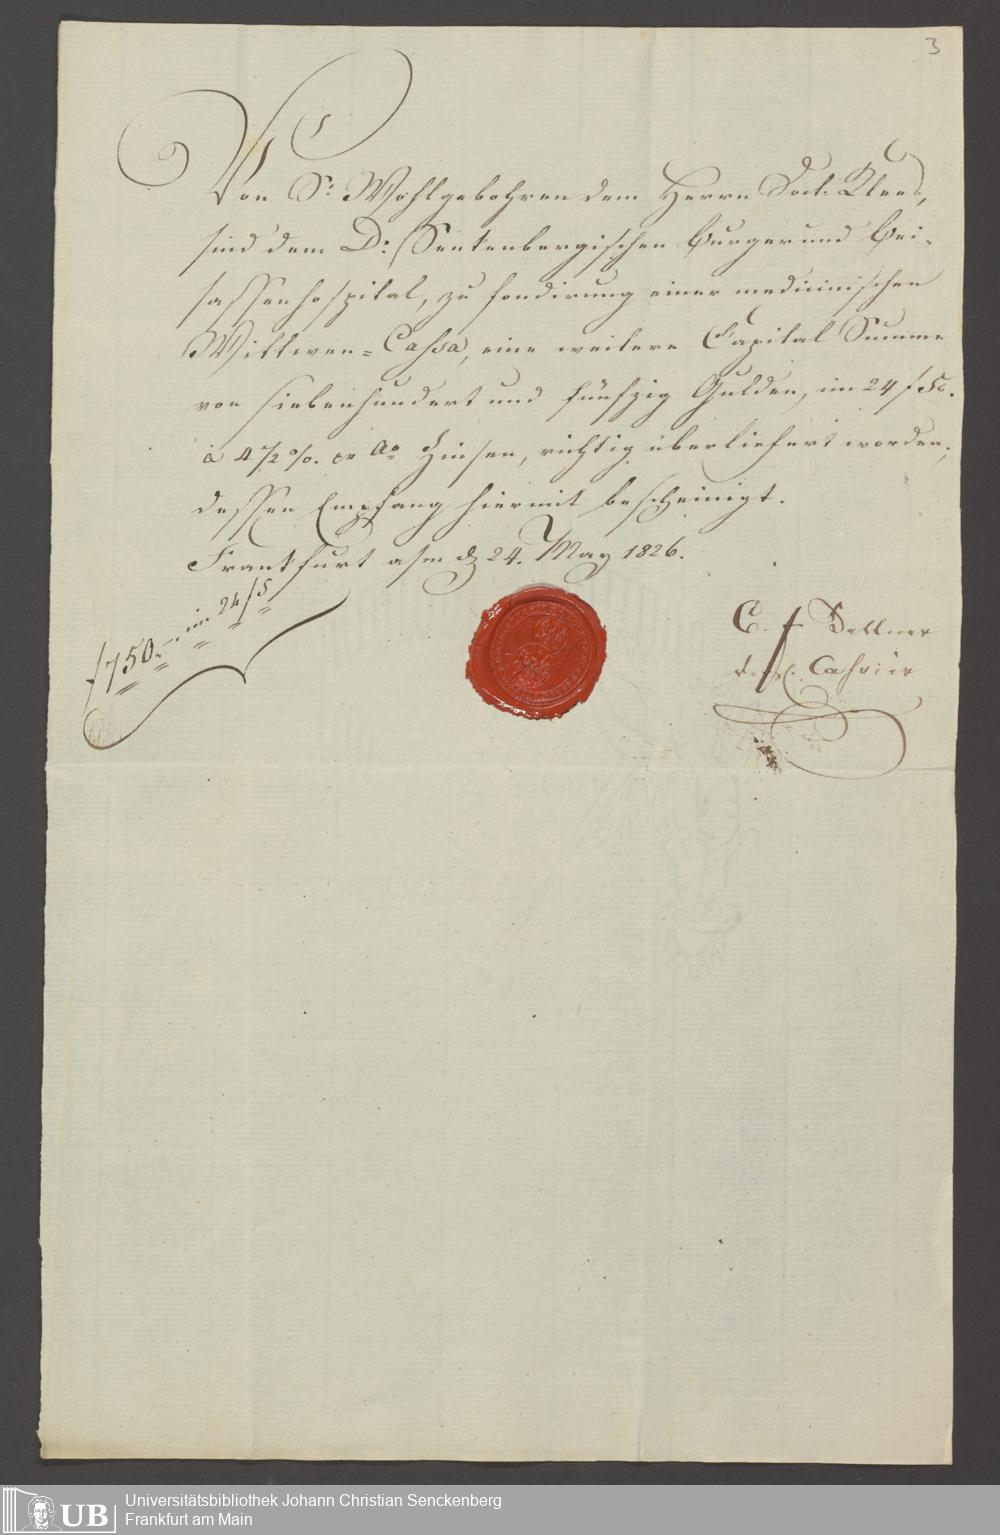 3
Von Sr. Wohlgebohren dem Herrn Doct. Kloss,
sind dem Dr. Senkenbergischen Burger und Bei-
sassenhospital, zu fondirung einer medicinischen
Wittwen-Cassa, eine weitere Capital Summe
von siebenhundert und fünfzig Gulden, im 24 f
à 4 1/2 %. Ao Zinsen, richtig überliefert worden,
dessen Empfang hiermit bescheinigt.
Frankfurt a/m d. 24. May 1826.
f 750.-. im 24/f
C. F. Zellner
Cassier
UB
Universitätsbibliothek Johann Christian Senckenberg
Frankfurt am Main